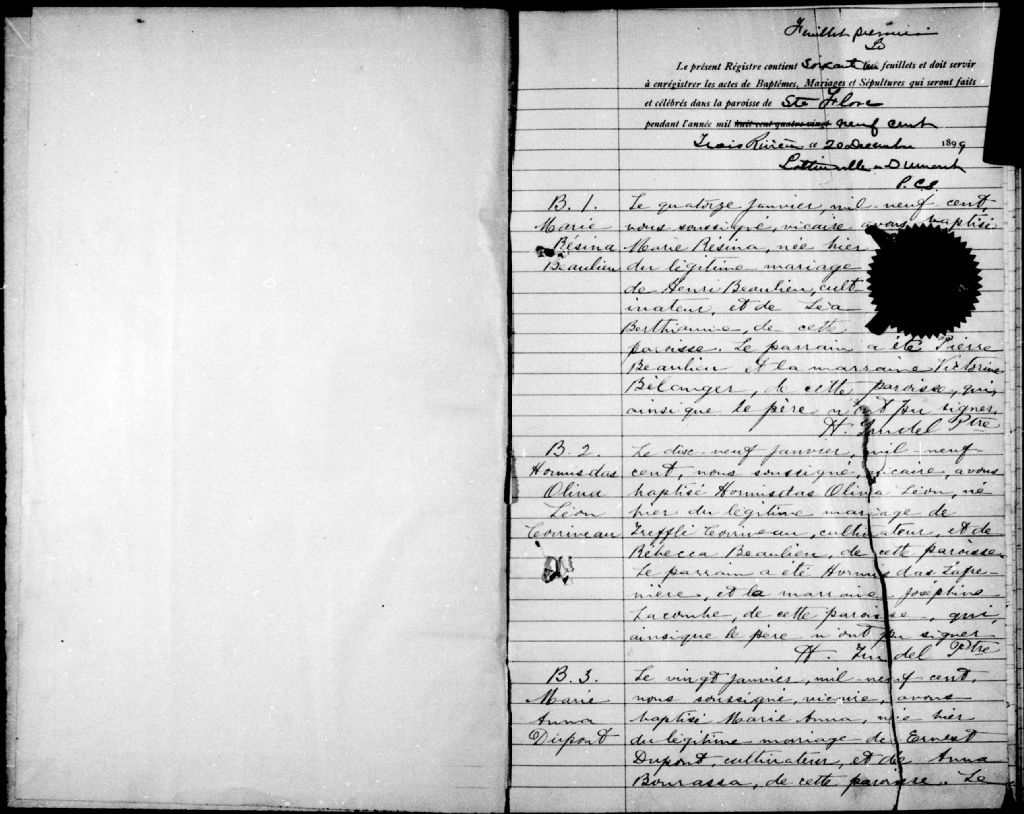 Feuillet premier
Le présent Régistre contient Soixante feuillets et doit servir
à enrégistrer les actes de Baptêmes, Mariages et Sépultures qui seront faits
et célébrés dans la paroisse de Ste Flore
pendant l'année mil huit cent quatre vingt neuf cent
Trois Rivières ce 20 Décembre 1899
Lottinville & Dumont
P.C.S.
B. 1. Le quatorze janvier, mil neuf cent,
Marie nous soussigné, vicaire avons baptisé
Résina Marie Résina, née hier
Beaulieu du légitime mariage
de Henri Beaulieu, cult
ivateur, et de Léa
Berthiaume, de cette
paroisse. Le parrain a été Pierre
Beaulieu et la marraine Victorine
Bélanger, de cette paroisse, qui,
ainsi que le père n'ont pu signer.
H. Trudel Ptre
B. 2. Le dix-neuf janvier, mil neuf
Hormisdas cent, nous soussigné, vicaire, avons
Oliva baptisé Hormisdas Oliva Léon, né
Léon hier du légitime mariage de
Corriveau Trefflé Corriveau, cultivateur, et de
Rébecca Beaulieu, de cette paroisse.
Le parrain a été Hormisdas Lafre-
nière, et la marraine Joséphine
Lacombe, de cette paroisse, qui,
ainsi que le père n'ont pu signer
H. Trudel Ptre
B. 3. Le vingt janvier, mil neuf cent,
Marie nous soussigné, vicaire, avons
Anna baptisé Marie Anna, née hier
Dupont du légitime mariage de Ernest
Dupont, cultivateur, et de Anna
Bourassa, de cette paroisse. Le